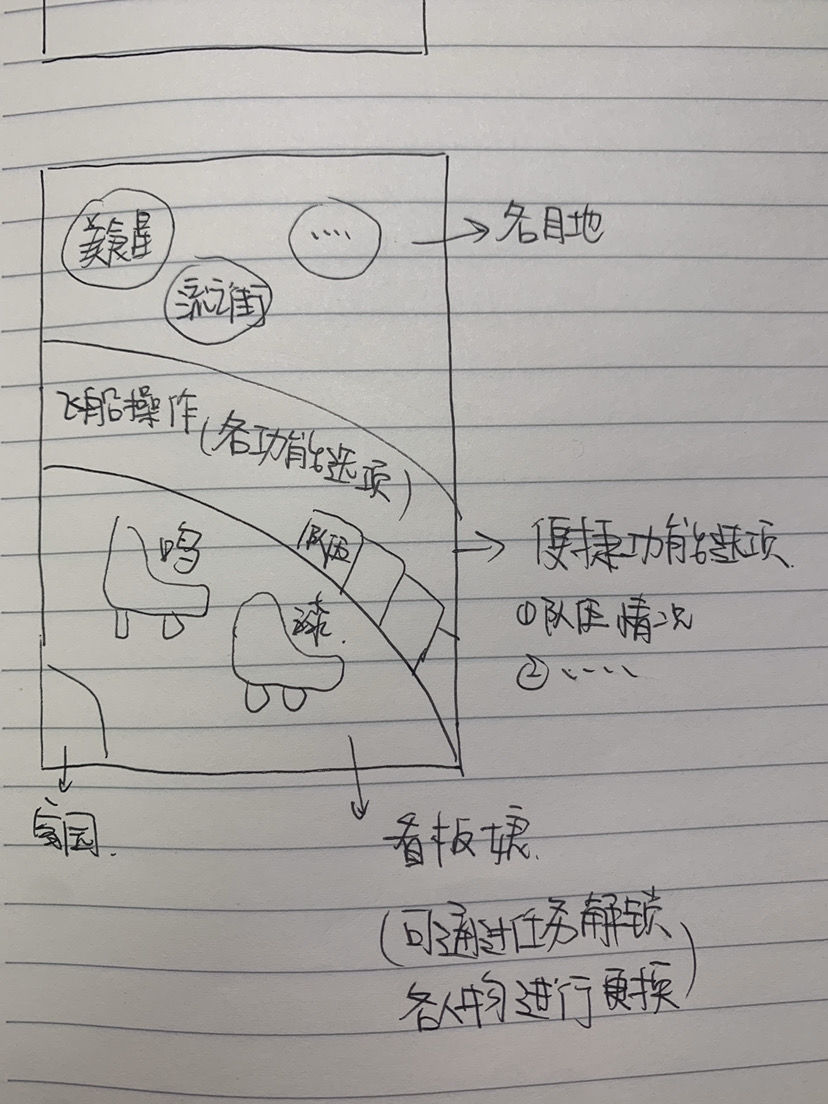 美食星
....
各目地
流浪街
飞船操作
(各功能选项)
鸣
队伍
便捷功能选项
①队伍情况
②....
漆.
家园.
看板娘.
(可通过任务解锁
各人物进行更换)